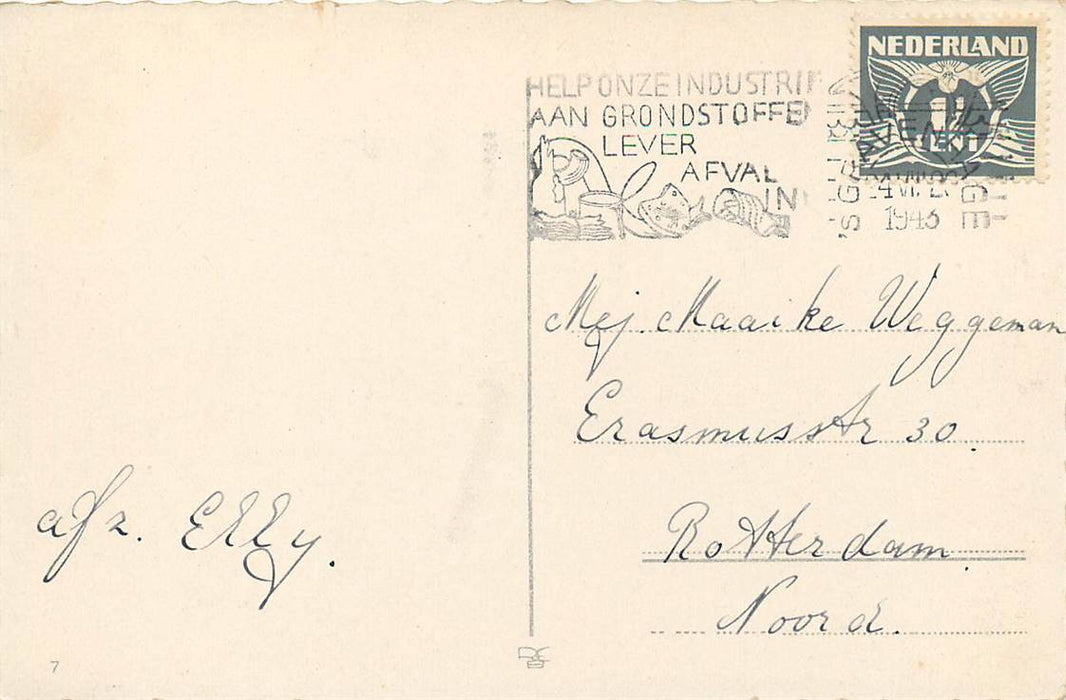 NEDERLAND
1½
CENT
HELP ONZE INDUSTRIE
AAN GRONDSTOFFEN
LEVER
AFVAL
IN
'S-GRAVENHAGE
1943
Mej. Maaike Weggeman
Erasmusstr 30.
Rotterdam
Noord.
afz. Elly.
7